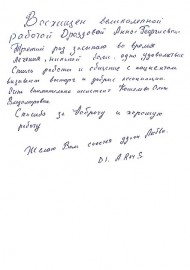 Восхищен великолепной
работой Дроздовой Анны Георгиевны.
Третий раз засыпаю во время
лечения, никакой боли, одно удовольствие
Стиль работы и общение с пациентом
вызывают восторг и добрые ассоциации.
Очень внимательна ассистент Ольга
Владимировна.
Спасибо за доброту и хорошую
работу
Желаю Вам счастья удачи Любви.